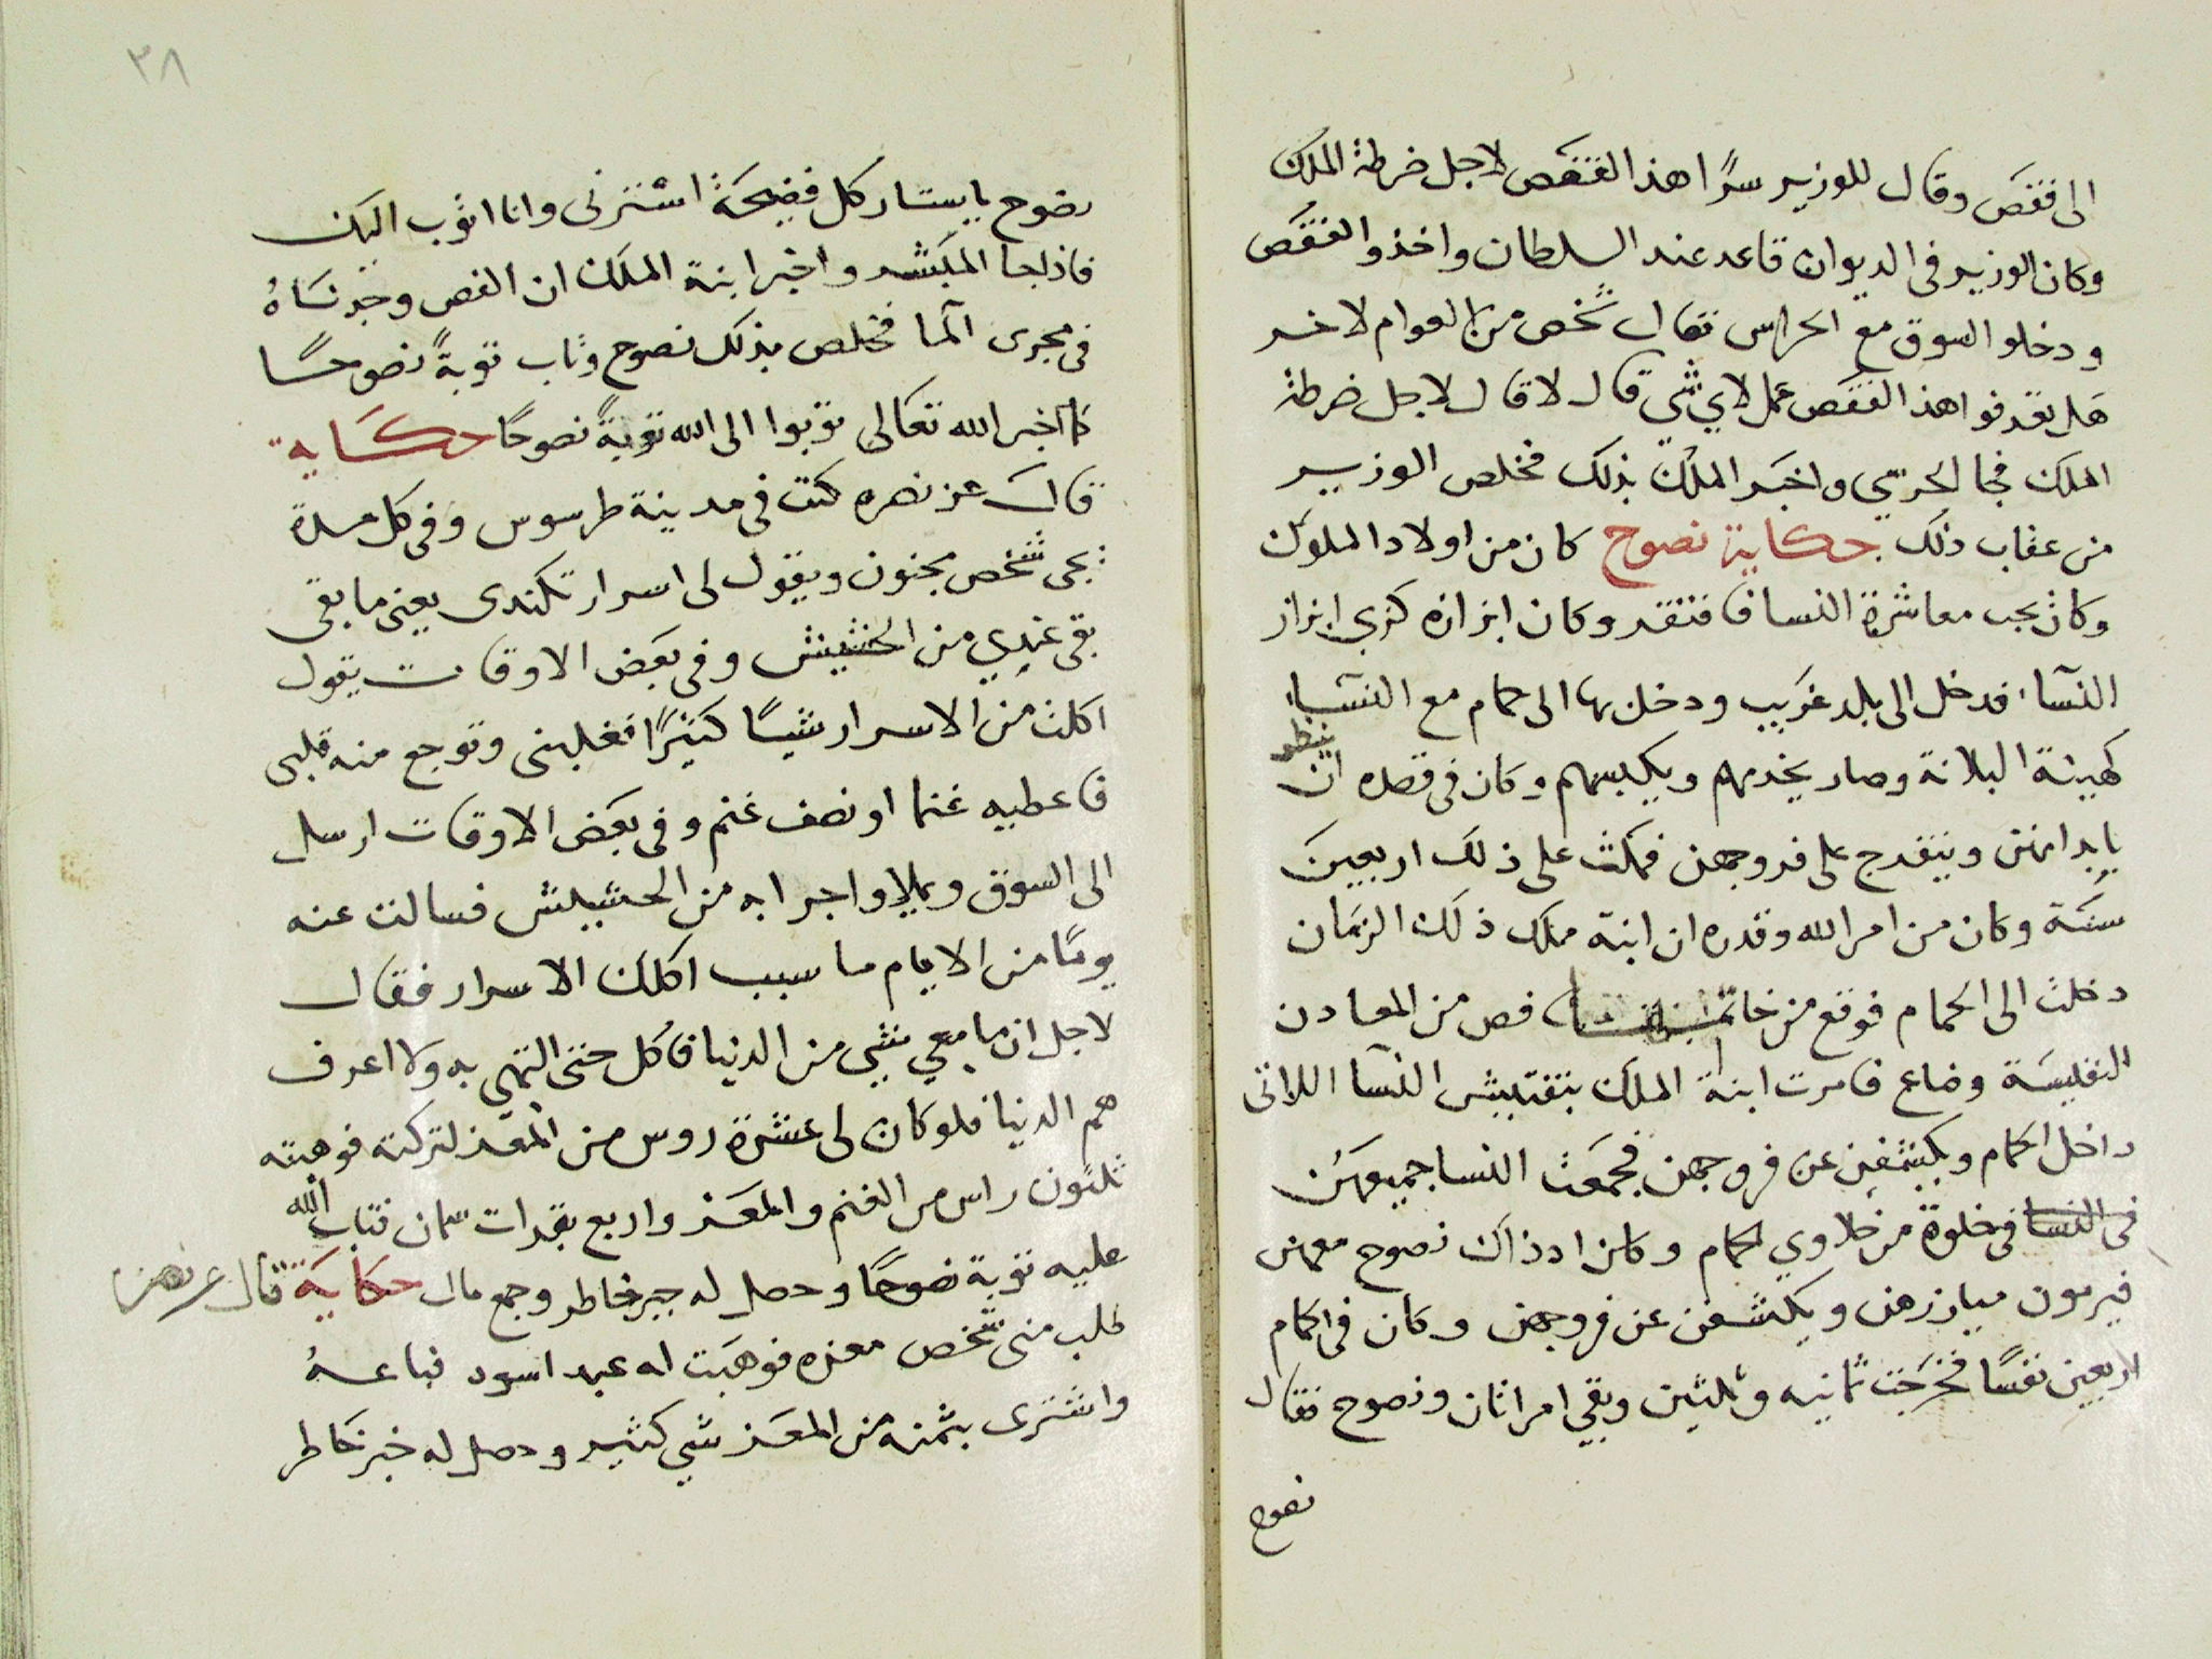 الى قفص وقال للوزير سرًا هذا القفص لاجل ضرطة الملك
وكان الوزير فى الديوان قاعد عند السلطان واخذوا القفص
ودخلو السوق مع الحراس فقال شخص من العوام لاخر
هل يعرفوا هذا القفص عمل لاي شي قال لا قال لاجل ضرطة
الملك فجا الحرسي واخبر الملك بذلك فخلص الوزير
من عقاب ذلك حكاية نصوح كان من اولاد الملوك
وكان يحب معاشرة النسا فافتقر وكان ابزازه كزي ابزاز
النسآء فدخل الى بلد غريب ودخل بها الى حمام مع النسآء
كهيئة البلانة وصار يخدمهم ويكبسهم وكان فى قصده ان ينظر
بابدانهن ويتفرج على فروجهن فمكث على ذلك اربعين
سنة وكان من امر الله وقدره ان ابنة ملك ذلك الزمان
دخلت الى الحمام فوقع من خاتمها فص من المعادن
النفيسة وضاع فامرت ابنة الملك بتفتيش النسآ اللاتى
داخل الحمام ويكشفن عن فروجهن فجمعت النسا جميعهن
فى النسا فى خلوة من خلاوي الحمام وكان اذ ذاك نصوح معهن
فيرمون ميازرهن ويكشفن عن فروجهن وكان فى الحمام
اربعين نفسًا فخرجت ثمانيه وثلثين وبقي امراتان ونصوح فقال
نصوح
نصوح يا ستار كل فضيحة استرنى وانا اتوب اليك
فاذا جا المبشر واخبر ابنة الملك ان الفص وجدناهُ
فى مجرى المآ فخلص بذلك نصوح وتاب توبةً نصوحًا
كما اخبر الله تعالى توبوا الى الله توبةً نصوحًا حكاية
قال عز نصره كنت فى مدينة طرسوس وفى كل مدة
يجى شخص مجنون ويقول لى اسرار تكندى يعنى ما بقى
بقى عندي من الحشيش وفى بعض الاوقات يقول
اكلت من الاسرار شيئًا كثيرًا فغلبنى وتوجع منه قلبى
فاعطيه غنما او نصف غنم وفى بعض الاوقات ارسل
الى السوق ويملاوا جرابه من الحشيش فسالت عنه
يومًا من الايام ما سبب اكلك الاسرار فقال
لاجل ان ما معي شي من الدنيا فاكل حتى التهي به ولا اعرف
هم الدنيا فلو كان لى عشرة روس من المعز لتركته فوهبته
ثلثون راس من الغنم والمعز واربع بقرات سمان فتاب الله
عليه توبة نصوحًا وحصل له جبر خاطر وجمع مال حكاية قال عز نصره
طلب منى شخص معزه فوهبت له عبد اسود فباعهُ
واشترى بثمنه من المعز شي كثير وحصل له خبر خاطر
٣٨